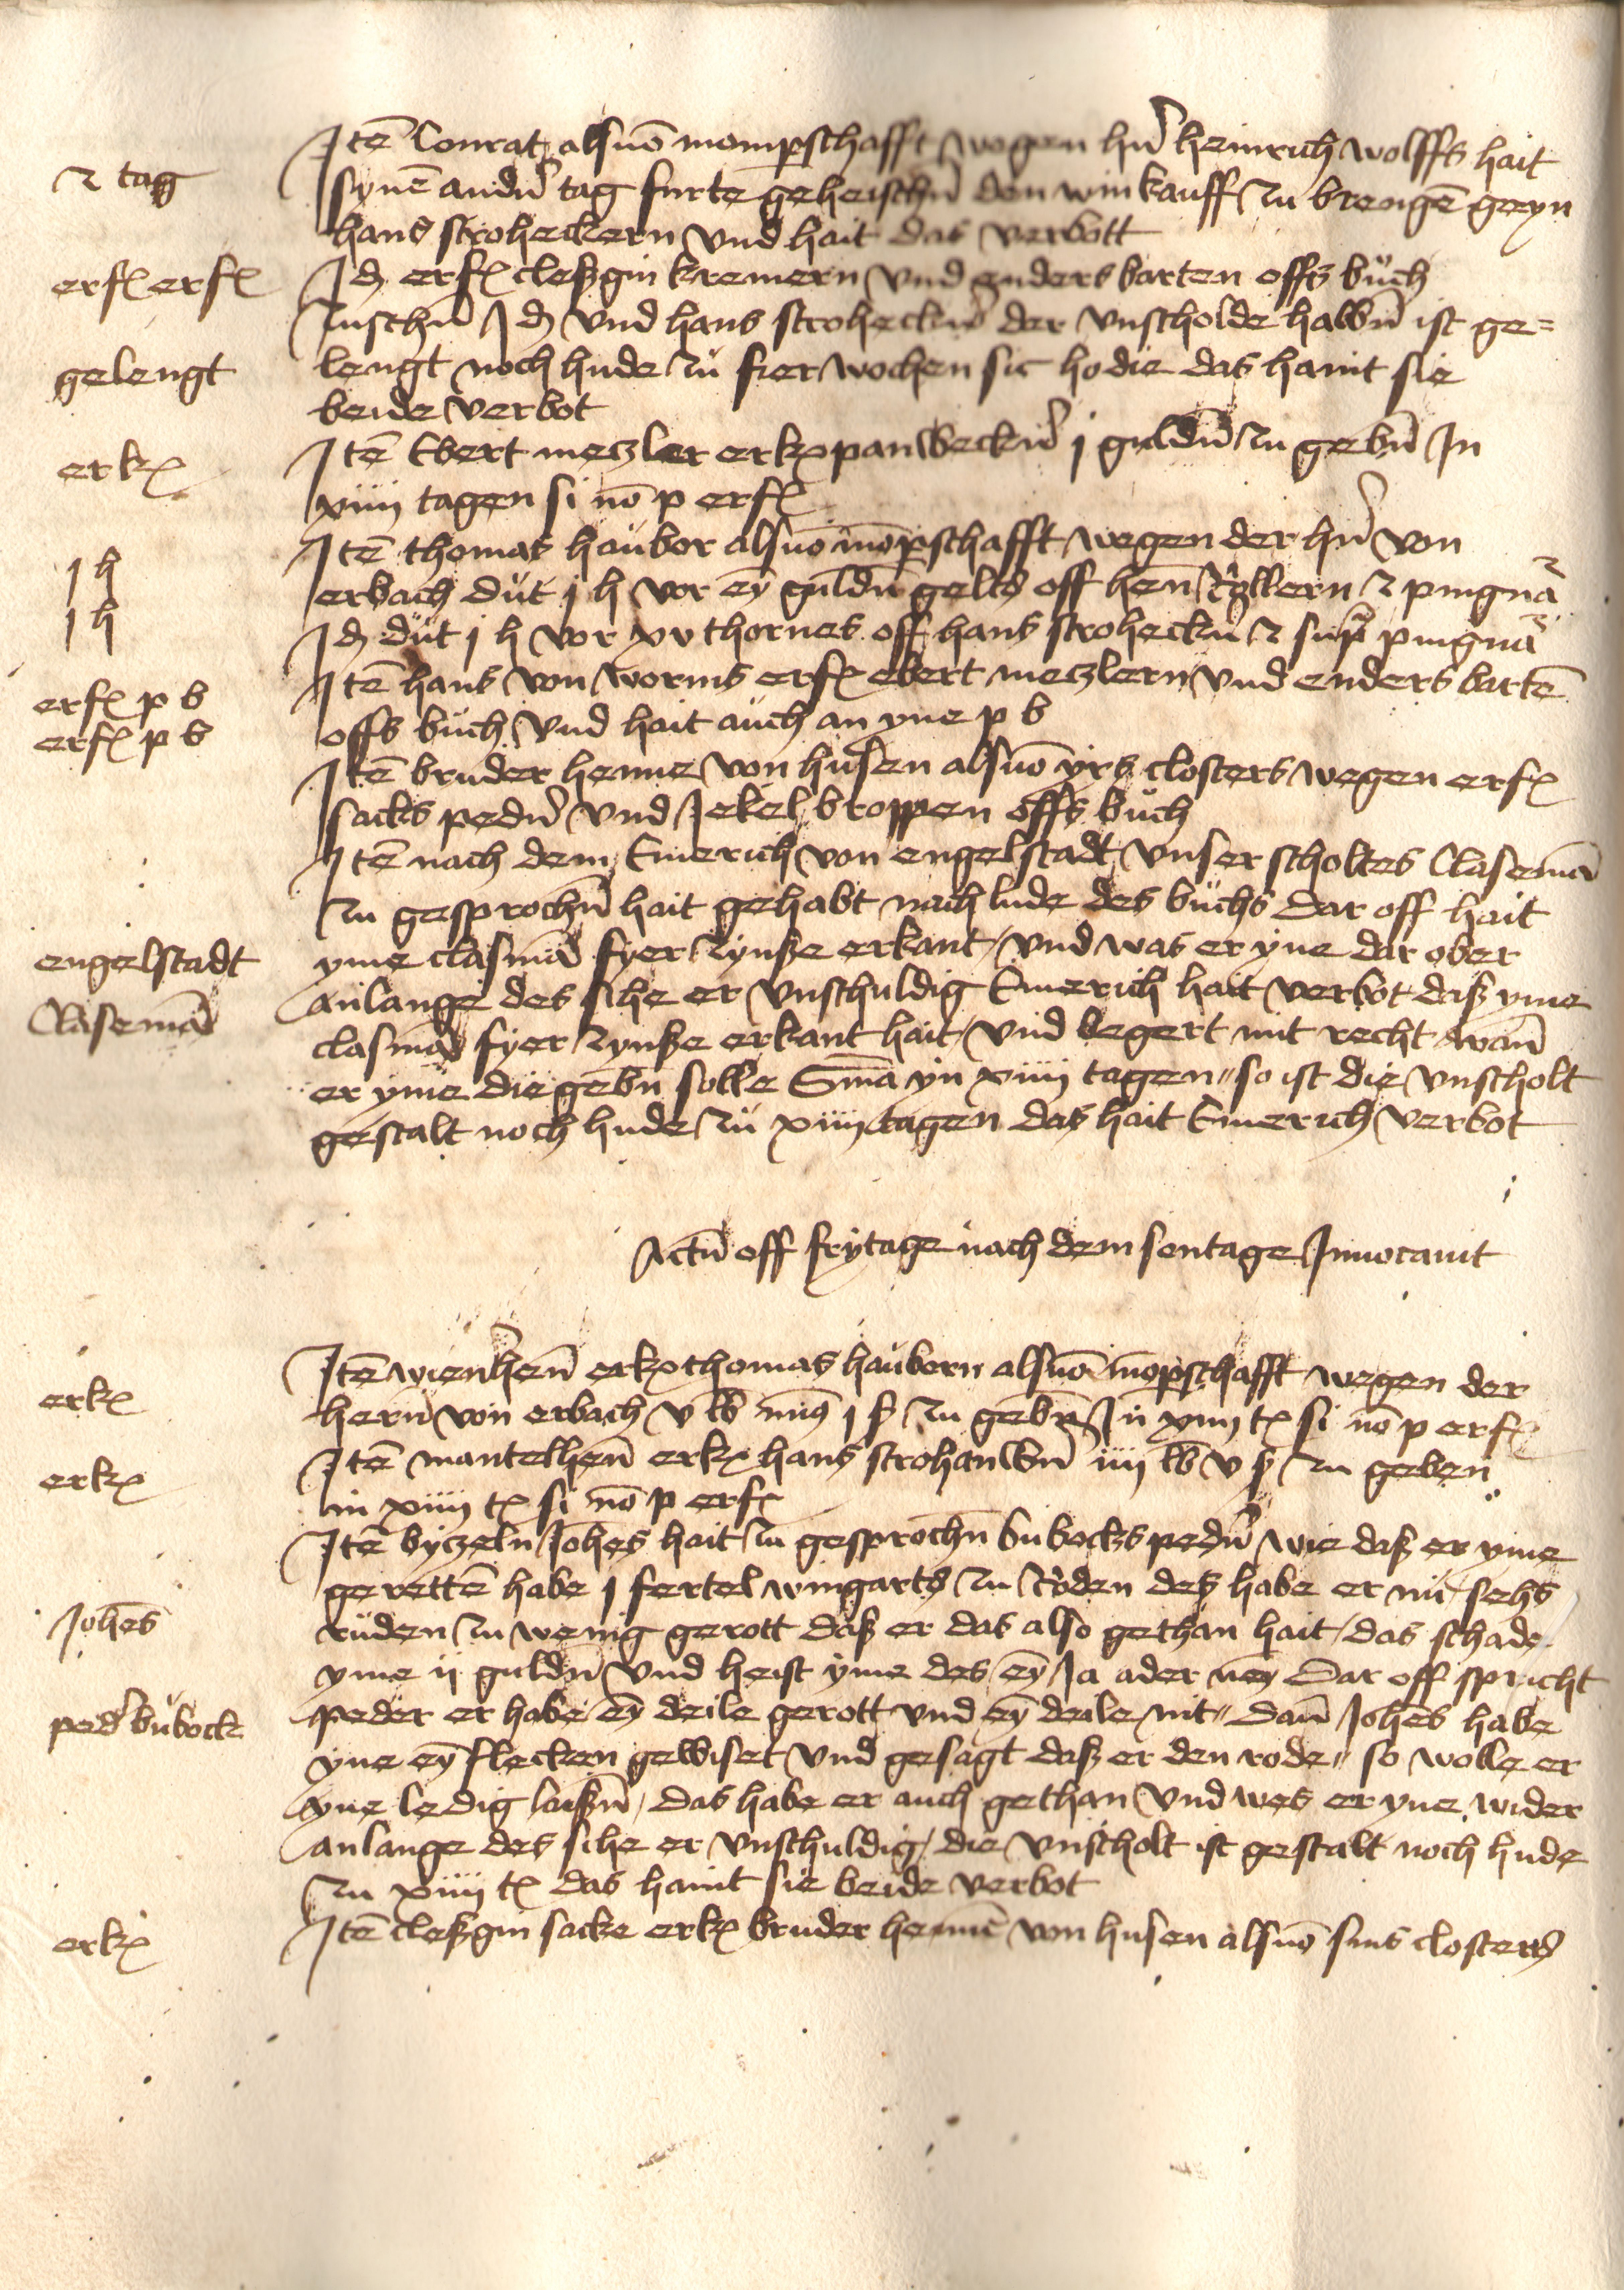 Itē Conrat alsuō mompschafft wegen hn̄ heinrich wolffs hait
2 tag
synē andn̄ tag furte geheischn̄ den winkauff zu brengē geyn
hans stroheckern vnd hait das verbott
erf erf
Id erf cleßgin kremern vnd enders barten offs buch
zuschn̄ Id vnd hans stroheckn̄ der vnscholde halbn̄ ist ge=
gelengt
lengt noch hude zu fier wochen sic hodie das haint sie
beide verbot
erk
Itē Ebert meczler erk panbeckn̄ j guldn̄ zu gebn̄ In
xiiij tagen si nō p erf
Itē thomas haubor alsuō mōpschafft wegen der hn̄ von
j h
erbach dut j h vor eȳ guldn̄ gelts off hen̄ 2 pingnā
j h
Id dut j h vor xv thornes off hans stroheckn̄ 2 sup̄ pingnā
erf p b
Itē hans von worms erf ebert meczlern vnd enders bartē
erf p b
offs buch vnd hait auch an yne p b
Itē bruder henne von husen alsuō yrs closters wegen erf
sacks pedn̄ vnd Jekel broppen offs buch
Itē nach dem Emerich von engelstadt vnser scholtes Clasemā
zu gesprochn̄ hait gehabt nach lude des buchs dar off hait
engelstadt
yme clasmā fyer zynße erkant / vnd was er yne dar ober
Clasemā
anlange des sihe er vnschuldig Emerich hait verbot daß yme
clasmā fyer zynße erkant hait / vnd begert mit recht wan̄
er yme die gebn̄ solle Sn̄ia yn xiiij tagen so ist die vnscholt
gestalt noch hude zu xiiij tagen das hait Emerich verbot
Actū off frytage nach dem sontage Inuocauit
erk
Itē wienhen̄ erk thomas haubern alsuō mōpschafft wegen der
hern̄ von erbach v lb min9 j ß zu gebn̄ In xiiij t si nō p erf
erk
Itē mantelhen̄ erk hans strohanbn̄ iiij lb v ß zu geben
in xiiij t si nō p erf
Itē byczeln Johēs hait zu gesprochn̄ bubocks pedn̄ wie daß er yme
gerettē habe j fertel wingarts zu Roden deß habe er nu sehs
Johēs
ruden zu wenig gerott daß er das also gethan hait / das schade
yme ij guldn̄ vnd heist yme des eȳ Ja ader ney Dar off spricht
ped̄ bubock
peder er habe eȳ deile gerott vnd eȳ deile nit Dan̄ Johēs habe
yne eȳ flecken gewiset vnd gesagt daß er den rode so wolle er
yne ledig laißn̄ / das habe er auch gethan vnd wes er yne wider
anlange des sihe er vnschuldig / die vnscholt ist gestalt noch hude
zu xiiij t das haint sie beide verbot
erk
Itē cleßgin sacke erk bruder hennē von husen alsuō sins closters